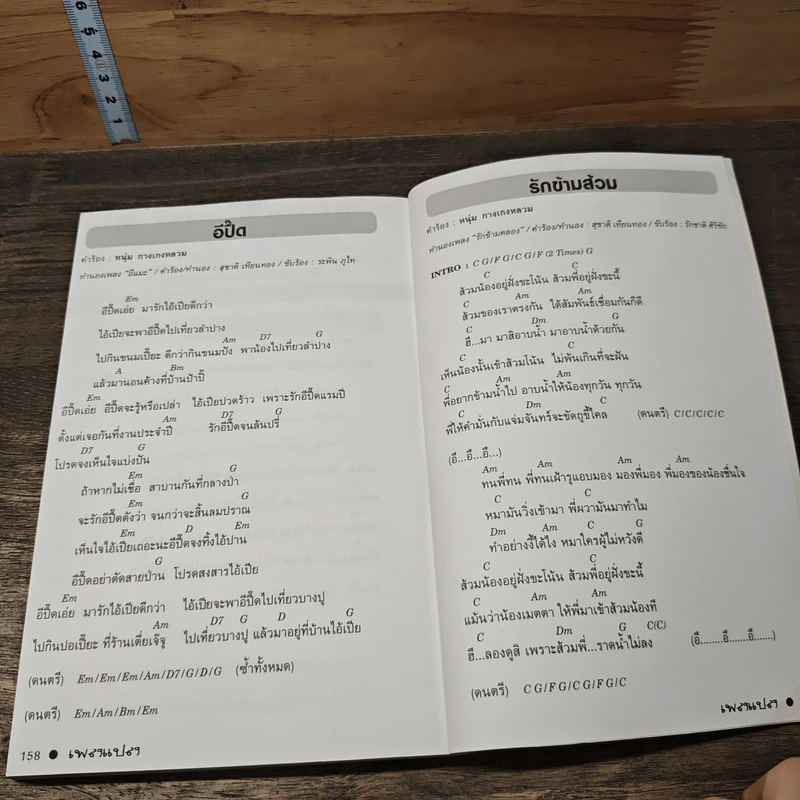 6
5
4
3
2
1
อีปี๊ด
คำร้อง : หนุ่ม กางเกงหลวม
ทำนองเพลง "อีแมะ" / คำร้อง/ทำนอง : สุชาติ เทียนทอง / ขับร้อง : ระพิน ภูไท
Em
อีปี๊ดเอ่ย มารักไอ้เปียดีกว่า
ไอ้เปียจะพาอีปี๊ดไปเที่ยวลำปาง
Am D7 G
ไปกินขนมเปี๊ยะ ดีกว่ากินขนมปัง พาน้องไปเที่ยวลำปาง
A Bm
แล้วมานอนค้างที่บ้านป่าปี๊
Em
อีปี๊ดเอ่ย อีปี๊ดจะรู้หรือเปล่า ไอ้เปียปวดร้าว เพราะรักอีปี๊ดแรมปี
Am D7 G
ตั้งแต่เจอกันที่งานประจำปี รักอีปี๊ดจนล้นปรี่
D7 G
โปรดจงเห็นใจแบ่งปัน
Em G
ถ้าหากไม่เชื่อ สาบานกันที่กลางป่า
Em G
จะรักอีปี๊ดดังว่า จนกว่าจะสิ้นลมปราณ
Em D Em
เห็นใจไอ้เปียเถอะนะอีปี๊ดจงทิ้งไอ้ปาน
G
อีปี๊ดอย่าตัดสายป่าน โปรดสงสารไอ้เปีย
Em
อีปี๊ดเอ่ย มารักไอ้เปียดีกว่า ไอ้เปียจะพาอีปี๊ดไปเที่ยวบางปู
Am D7 G D G
ไปกินปอเปี๊ยะ ที่ร้านเตี่ยเจ๊ฐู ไปเที่ยวบางปู แล้วมาอยู่ที่บ้านไอ้เปีย
(ดนตรี) Em/Em/Em/Am/D7/G/D/G (ซ้ำทั้งหมด)
(ดนตรี) Em/Am/Bm/Em
158 ● เพลงแปลง
รักข้ามส้วม
คำร้อง : หนุ่ม กางเกงหลวม
ทำนองเพลง "รักข้ามคลอง" / คำร้อง/ทำนอง : สุชาติ เทียนทอง / ขับร้อง : รักชาติ ศิริชัย
INTRO : C G/F G/C G/F (2 Times) G
C C
ส้วมน้องอยู่ฝั่งขะโน้น ส้วมพี่อยู่ฝั่งขะนี้
C Am Am
ส้วมของเราตรงกัน ได้สัมพันธ์เชื่อมกันก็ดี
C Dm G
ฮื...มา มาสิอาบน้ำ มาอาบน้ำด้วยกัน
C C
เห็นน้องนั้นเข้าส้วมโน้น ไม่พ้นเกินที่จะฝัน
C Am Am
พี่อยากข้ามน้ำไป อาบน้ำให้น้องทุกวัน ทุกวัน
C Dm C
พี่ให้คำมั่นกับแจ่มจันทร์จะขัดถูขี้ไคล (ดนตรี) C/C/C/C/C
(อื...อื...อื...)
Am Am Am Am
ทนพี่ทน พี่ทนเฝ้ารูแอบมอง มองพี่มอง พี่มองของน้องชื่นใจ
C C
หมามันวิ่งเข้ามา พี่ผวามันมาทำไม
Dm Am C G
ทำอย่างงี้ได้ไง หมาใครผู้ไม่หวังดี
C C
ส้วมน้องอยู่ฝั่งขะโน้น ส้วมพี่อยู่ฝั่งขะนี้
C Am Am
แม้นว่าน้องเมตตา ให้พี่มาเข้าส้วมน้องที
C Dm G C(C)
ฮื...ลองดูสิ เพราะส้วมพี่...ราดน้ำไม่ลง (อื.......อื.......อื.......)
(ดนตรี) C G/F G/C G/F G/C
เพลงแปลง ●